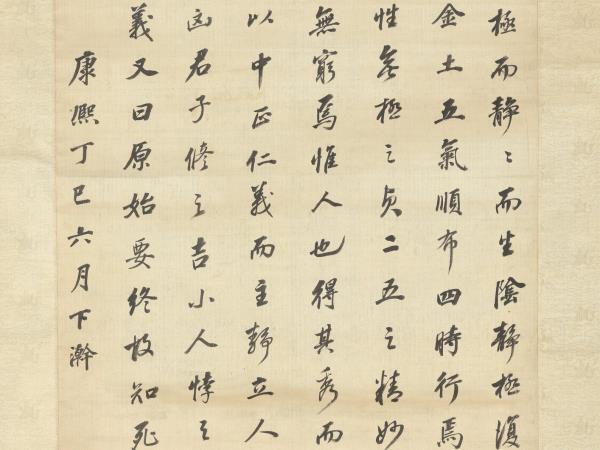 極而靜〻而生陰靜極復
金土五氣順布四時行焉
性無極之真二五之精妙
無窮焉惟人也得其秀而
以中正仁義而主靜立人
凶君子修之吉小人悖之
義又曰原始要終故知死
康熙丁巳六月下澣